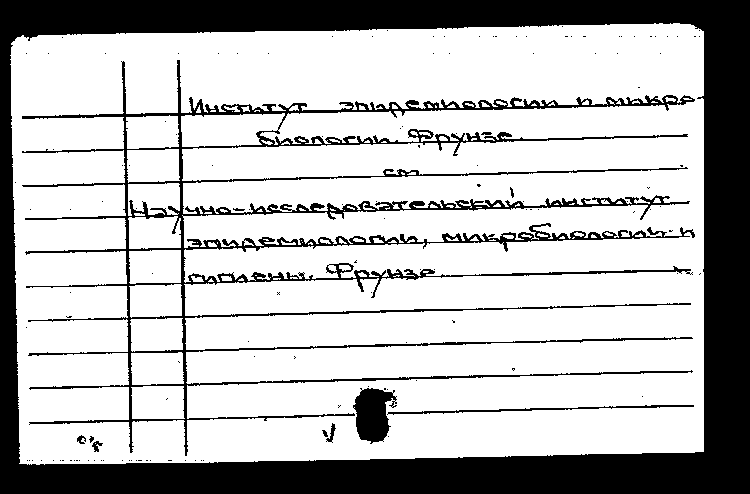 Институт эпидемиологии и микро-
биологии. Фрунзе.
см
Научно-исследовательский институт
эпидемиологии, микробиологии и
гигиены. Фрунзе